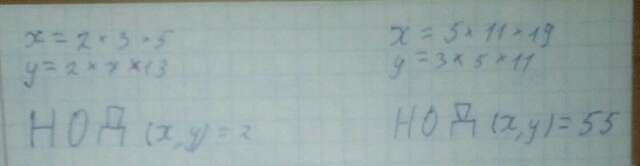 x = 2 × 3 × 5
y = 2 × 7 × 13
НОД (x, y) = 2
x = 5 × 11 × 19
y = 3 × 5 × 11
НОД (x, y) = 55